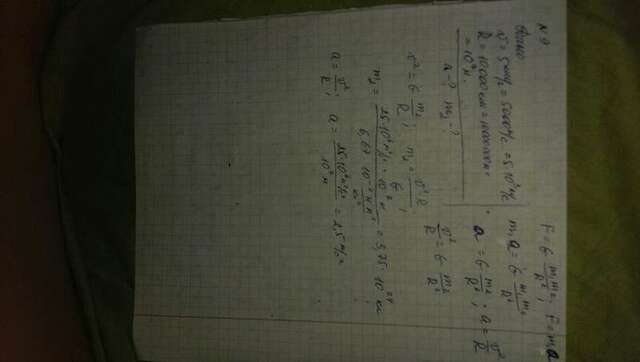 N 9
Дано
v = 5 км/с = 5000 м/с = 5·10³ м/с
R = 10000 км = 10000000 м =
= 10⁷ м.
a - ? m₂ - ?
F = G m₁m₂/R²; F = m₁a
m₁a = G m₁m₂/R²
a = G m₂/R²; a = v²/R
v²/R = G m₂/R²
v² = G m₂/R; m₂ = v²·R/G;
m₂ = 25·10⁶ м²/с²·10⁷ м / 6,67·10⁻¹¹ Н·м²/кг² = 3,75·10²⁴ кг
a = v²/R; a = 25·10⁶ м²/с² / 10⁷ м = 2,5 м/с²